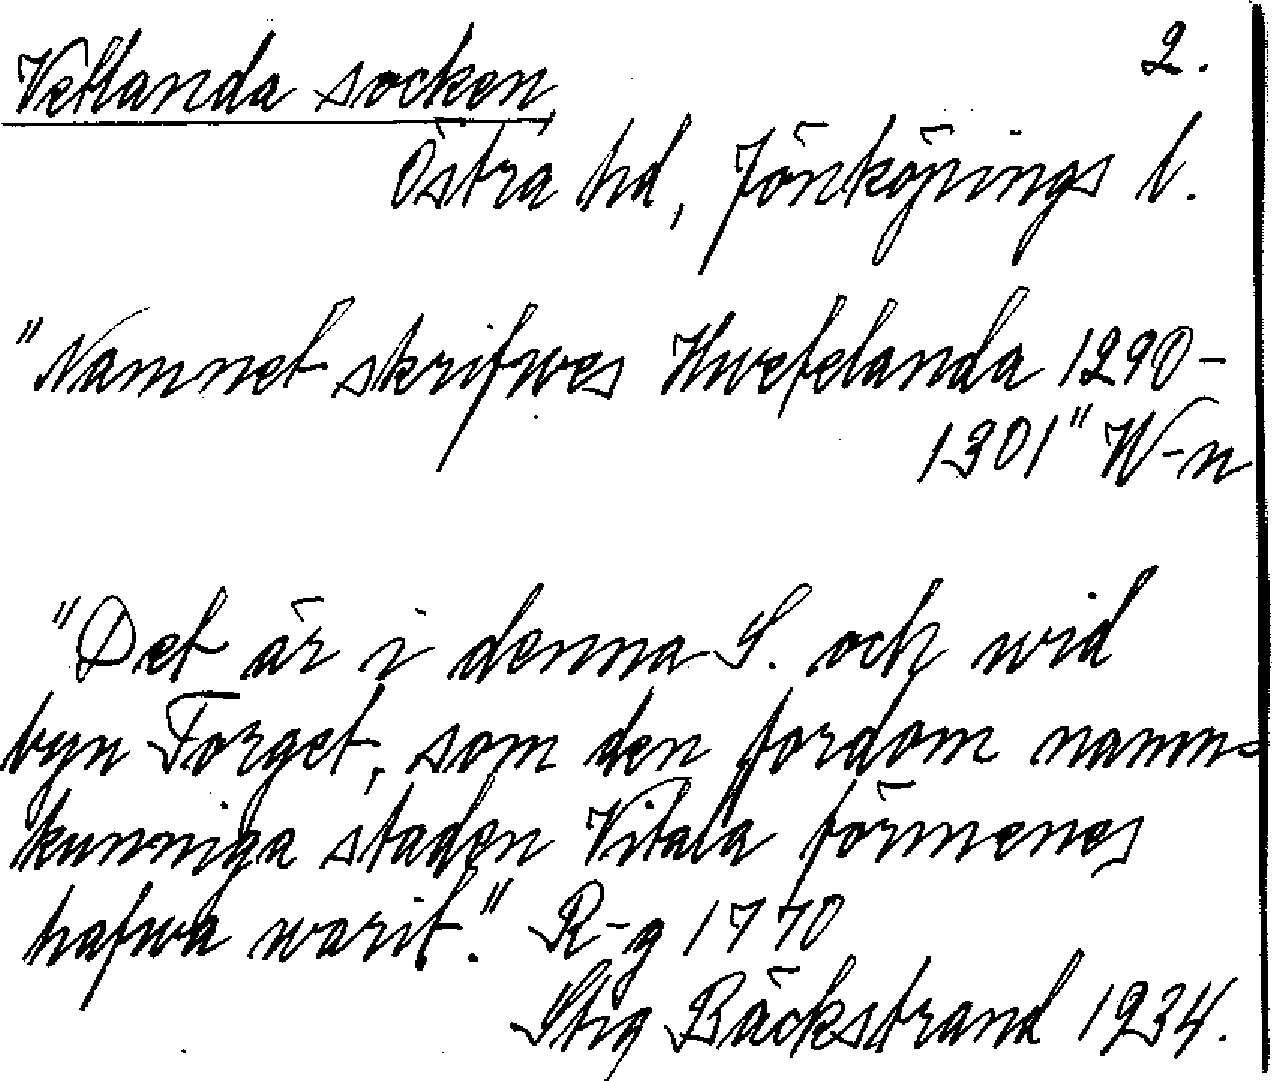 2.
Vetlanda socken
Östra hd, Jönköpings l.
"Namnet skrifwes Hwetelanda 1290-
1301" W-n
"Det är i denna S. och wid
byn Torget, som den fordom namn-
kunniga staden Vitala förmenes
hafwa warit." R-g 1770
Stig Bäckstrand 1934.